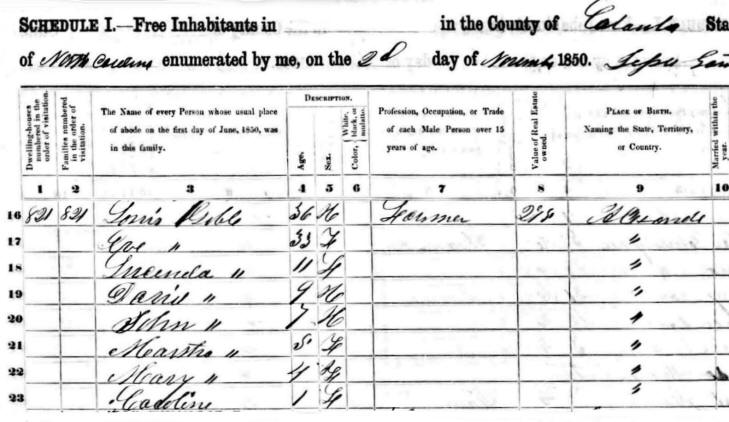 SCHEDULE I.—Free Inhabitants in in the County of Catawba Sta
of North Carolina enumerated by me, on the 2d day of Novemb, 1850.
Dwelling-houses numbered in the order of visitation.
Families numbered in the order of visitation.
The Name of every Person whose usual place of abode on the first day of June, 1850, was in this family.
DESCRIPTION.
Age.
Sex.
Color, { White, black, or mulatto.
Profession, Occupation, or Trade of each Male Person over 15 years of age.
Value of Real Estate owned.
PLACE OF BIRTH. Naming the State, Territory, or Country.
Married within the year.
1 2 3 4 5 6 7 8 9 10
16 821 821 36 M Farmer
17 Eve " 33 F "
18 " 11 F "
19 David " 9 M "
20 John " 7 M "
21 Martha " 5 F "
22 Mary " 4 F "
23 Caroline 1 F "